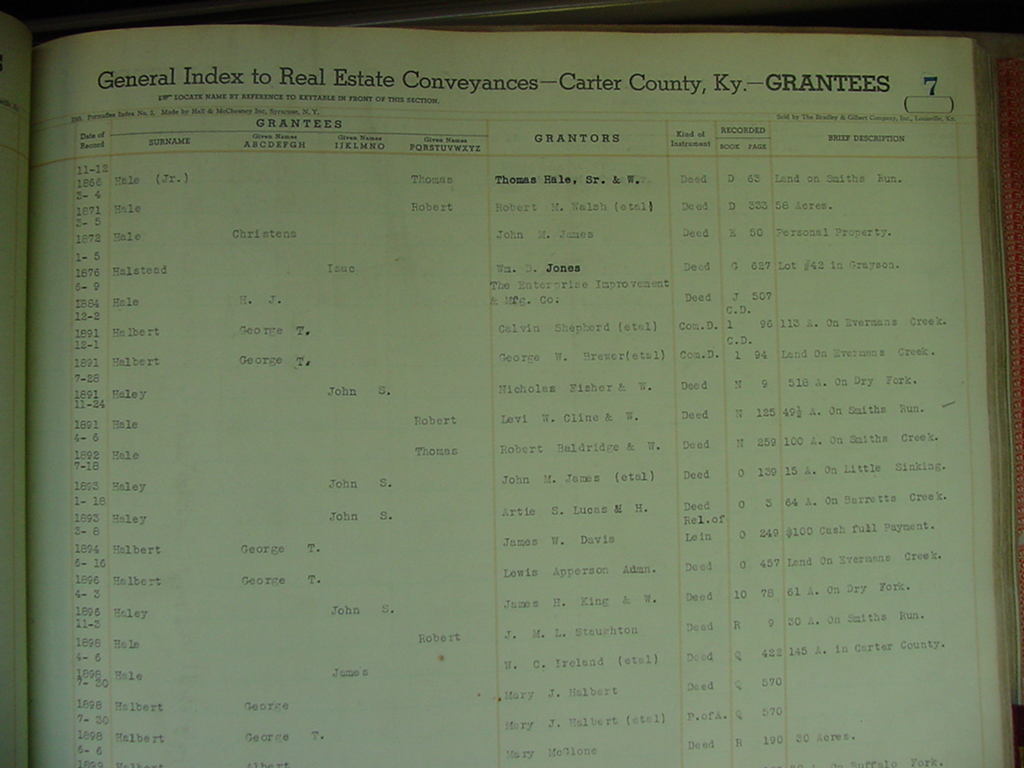 General Index to Real Estate Conveyances—Carter County, Ky.—GRANTEES 7
LOCATE NAME BY REFERENCE TO KEYTABLE IN FRONT OF THIS SECTION.
Index No. 2. Made by Hall & McChesney Inc, Syracuse, N. Y. Sold by The Bradley & Gilbert Company, Inc., Louisville, Ky.
Date of Record GRANTEES GRANTORS Kind of Instrument RECORDED BRIEF DESCRIPTION
SURNAME Given Names ABCDEFGH Given Names IJKLMNO Given Names PQRSTUVWXYZ BOOK PAGE
11-12
1866 Hale (Jr.) Thomas Thomas Hale, Sr. & W. Deed D 63 Land on Smiths Run.
3- 4
1871 Hale Robert Robert M. Walsh (etal) Deed D 333 58 Acres.
3- 5
1872 Hale Christena John M. James Deed E 50 Personal Property.
1- 5
1876 Halstead Isac Wm. D. Jones Deed G 627 Lot #42 in Grayson.
6- 9 The Enterprise Improvement
1884 Hale H. J. & Mfg. Co. Deed J 507
12-2 C.D.
1891 Halbert George T. Calvin Shepherd (etal) Com.D. 1 96 113 A. On Evermans Creek.
12-1 C.D.
1891 Halbert George T. George W. Brewer(etal) Com.D. 1 94 Land On Evermans Creek.
7-28
1891 Haley John S. Nicholas Fisher & W. Deed N 9 518 A. On Dry Fork.
11-24
1891 Hale Robert Levi W. Cline & W. Deed N 125 49½ A. On Smiths Run.
4- 6
1892 Hale Thomas Robert Baldridge & W. Deed N 259 100 A. On Smiths Creek.
7-18
1893 Haley John S. John M. James (etal) Deed O 139 15 A. On Little Sinking.
1- 18
1893 Haley John S. Artie S. Lucas & H. Deed O 3 64 A. On Barretts Creek.
3- 8 Rel.of
1894 Halbert George T. James W. Davis Lein O 249 $100 Cash full Payment.
6- 16
1896 Halbert George T. Lewis Apperson Admn. Deed O 457 Land On Evermans Creek.
4- 3
1896 Haley John S. James H. King & W. Deed 10 78 61 A. On Dry Fork.
11-3
1898 Hale Robert J. M. L. Staughton Deed R 9 30 A. On Smiths Run.
4- 6
1898 Hale James W. C. Ireland (etal) Deed Q 422 145 A. in Carter County.
7- 30
1898 Halbert George Mary J. Halbert Deed Q 570
7- 30
1898 Halbert George T. Mary J. Halbert (etal) P.ofA. Q 570
6- 6
1899 Halbert Albert Mary McGlone Deed R 190 30 Acres.
On Buffalo Fork.